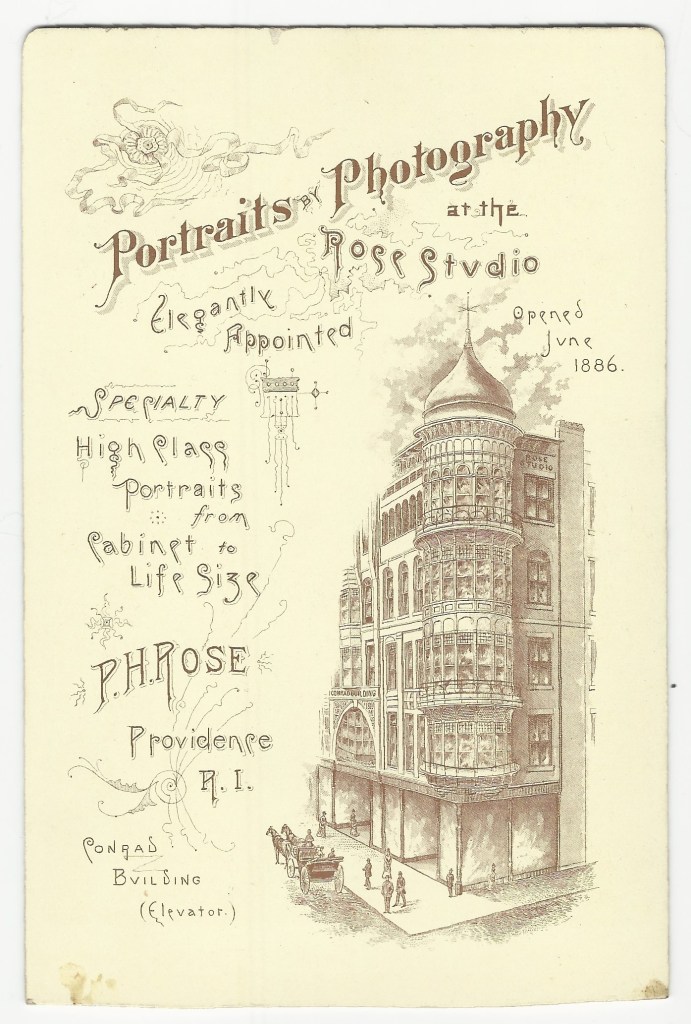 Portraits by Photography
at the
Rose Studio
Elegantly
Appointed
Opened
June
1886.
Specialty
High Class
Portraits
from
Cabinet to
Life Size
P.H.Rose
Providence
R.I.
Conrad
Building
(Elevator.)
ROSE
STUDIO
CONRAD BUILDING